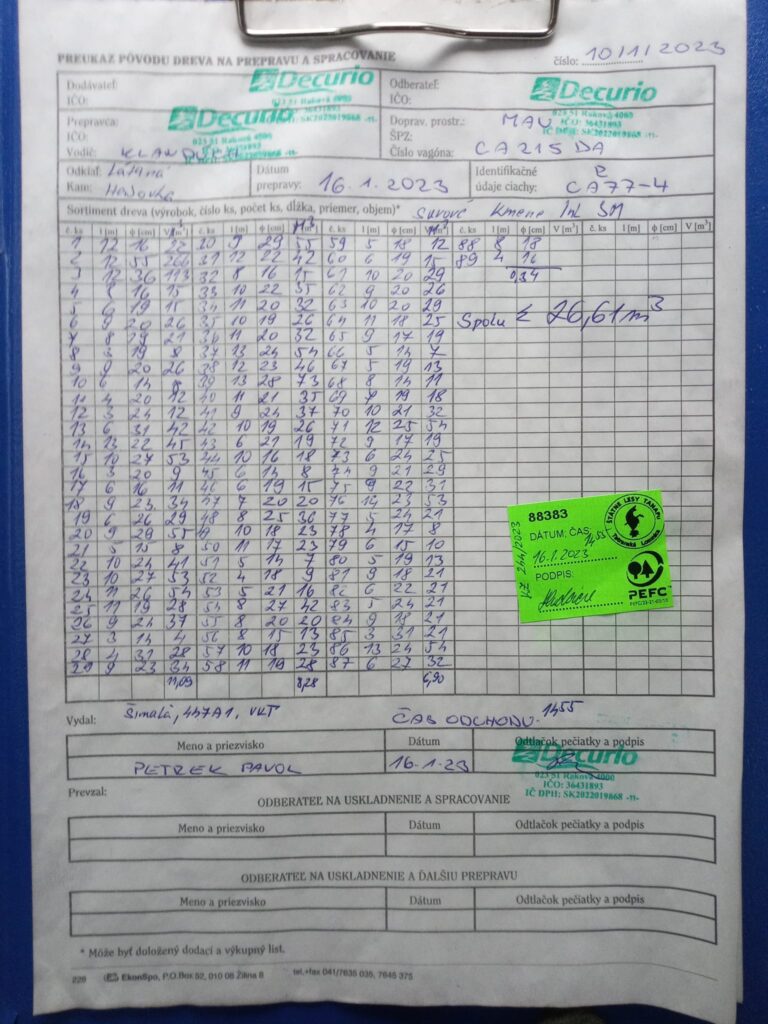 PREUKAZ PÔVODU DREVA NA PREPRAVU A SPRACOVANIE
číslo: 10/1/2023
Dodávateľ:
IČO:
Decurio
Odberateľ:
IČO:
Decurio
023 51 Raková 4000
IČO: 36431893
IČ DPH: SK2022019868 -11-
Prepravca:
IČO:
Vodič:
Decurio
023 51 Raková 4000
SK2022019868 -11-
Doprav. prostr.: MAN
ŠPZ:
Číslo vagóna: CA215DA
Odkiaľ:
Kam:
Dátum
prepravy: 16.1.2023
Identifikačné
údaje ciachy: CA77-4
Sortiment dreva (výrobok, číslo ks, počet ks, dĺžka, priemer, objem)* Surové Kmene Ihl SM
č. ks l [m] ϕ [cm] V [m³] č. ks l [m] ϕ [cm] č. ks l [m] ϕ [cm] č. ks l [m] ϕ [cm] V [m³] č. ks l [m] ϕ [cm] V [m³]
1 12 16 22 30 9 29 55 59 5 18 12 88 8 18
2 12 55 266 31 12 22 42 60 6 19 15 89 4 16
3 12 36 113 32 8 16 15 61 10 20 29 0,34
16 15 33 10 22 35 62 9 20 26
19 15 34 11 20 32 63 10 20 29
6 9 20 26 35 10 19 26 64 11 18 25 Spolu 26,61 m³
21 36 11 20 32 65 9 17 19
8 3 19 8 37 13 24 54 66 5 14 7
9 9 20 26 38 12 23 46 67 5 19 13
10 6 14 8 39 13 28 73 68 8 14 11
11 4 20 12 40 11 21 35 69 7 19 18
12 3 24 12 41 9 24 37 70 10 21 32
13 6 31 42 42 10 19 26 71 12 25 54
14 13 22 45 43 6 21 19 72 9 17 19
15 10 27 53 44 10 16 18 73 6 24 25
16 3 20 9 45 6 14 8 74 9 21 29
17 6 16 11 46 6 19 15 75 9 22 31
18 9 23 34 47 7 20 20 76 12 23 53
19 6 26 29 48 8 25 36 77 5 24 21
20 9 29 55 49 10 18 23 78 4 17 8
21 5 15 8 50 11 17 23 79 6 15 10
22 10 24 41 51 5 14 7 80 5 19 13
23 10 27 53 52 4 18 9 81 9 18 21
24 11 26 54 53 5 21 16 82 6 22 21
25 11 19 28 54 8 27 42 83 5 24 21
26 9 24 37 55 8 20 20 84 9 18 21
27 3 14 4 56 8 15 13 85 3 31 21
28 4 31 28 57 10 18 23 86 13 24 54
29 9 23 34 58 11 19 28 87 6 27 32
11,09 8,28 6,90
88383
DÁTUM, ČAS: 14⁵⁵
16.1.2023
PODPIS:
ŠTÁTNE LESY TANAPU
Tatranská Lomnica
PEFC
Vydal: Šimalá, 447A1, VKT ČAS ODCHODU: 14⁵⁵
Meno a priezvisko Dátum Odtlačok pečiatky a podpis
PETREK PAVOL 16.1.23
Decurio
023 51 Raková 4000
IČO: 36431893
IČ DPH: SK2022019868 -11-
Prevzal:
ODBERATEĽ NA USKLADNENIE A SPRACOVANIE
Meno a priezvisko Dátum Odtlačok pečiatky a podpis
ODBERATEĽ NA USKLADNENIE A ĎALŠIU PREPRAVU
Meno a priezvisko Dátum Odtlačok pečiatky a podpis
* Môže byť doložený dodací a výkupný list.
226 EkonSpo, P.O.Box 52, 010 08 Žilina 8 tel.+fax 041/7635 035, 7645 375